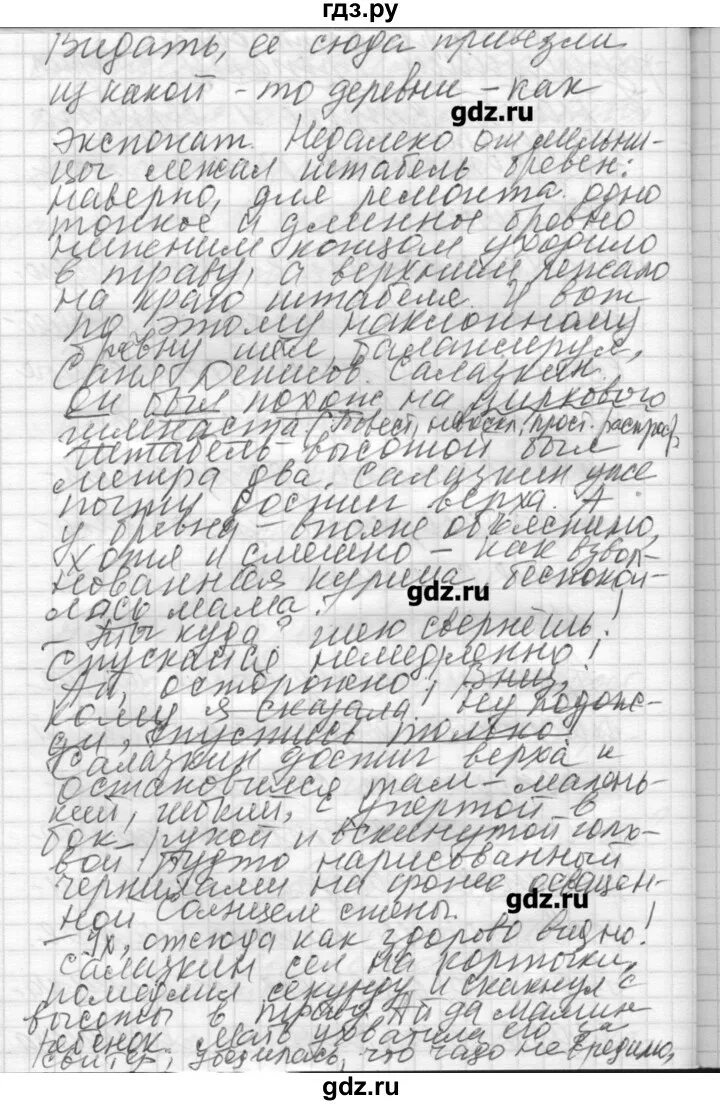 гдз.ру
Видать, её сюда привезли
из какой-то деревни - как
gdz.ru
Экспонат. Недалеко от мельни-
цы лежал штабель брёвен:
наверно, для ремонта. одно
тонкое и длинное бревно
нижним концом уходило
в траву, а верхним лежало
на краю штабеля. И вот
по этому наклонному
бревну шёл, балансируя,
Саня Денисов. Салазкин.
Он был похож на циркового
гимнаста (повест., невоскл., прост. распр.)
Штабель высотой был
метра два. Салазкин уже
почти достиг верха. А
у бревна - вполне объяснимо,
хотя и смешно - как взвол-
нованная курица беспокои-
gdz.ru
лась мама.
- Ты куда? шею свернёшь!
Спускайся немедленно!
Ай, осторожно! Вниз,
кому я сказала! Ну подож-
ди, спустись только!
Салазкин достиг верха и
остановился там - малень-
кий, гибкий, с упёртой в
бок рукой и вскинутой голо-
вой, будто нарисованный
чернилами на фоне освещён-
gdz.ru
ной солнцем стены.
- Ух, отсюда как здорово видно!
Салазкин сел на корточки,
помедлил секунду и скакнул с
высоты в траву. Ай да мамин
ребёнок. Мать ухватила его за
свитер, убедилась, что чадо невредимо,
gdz.ru